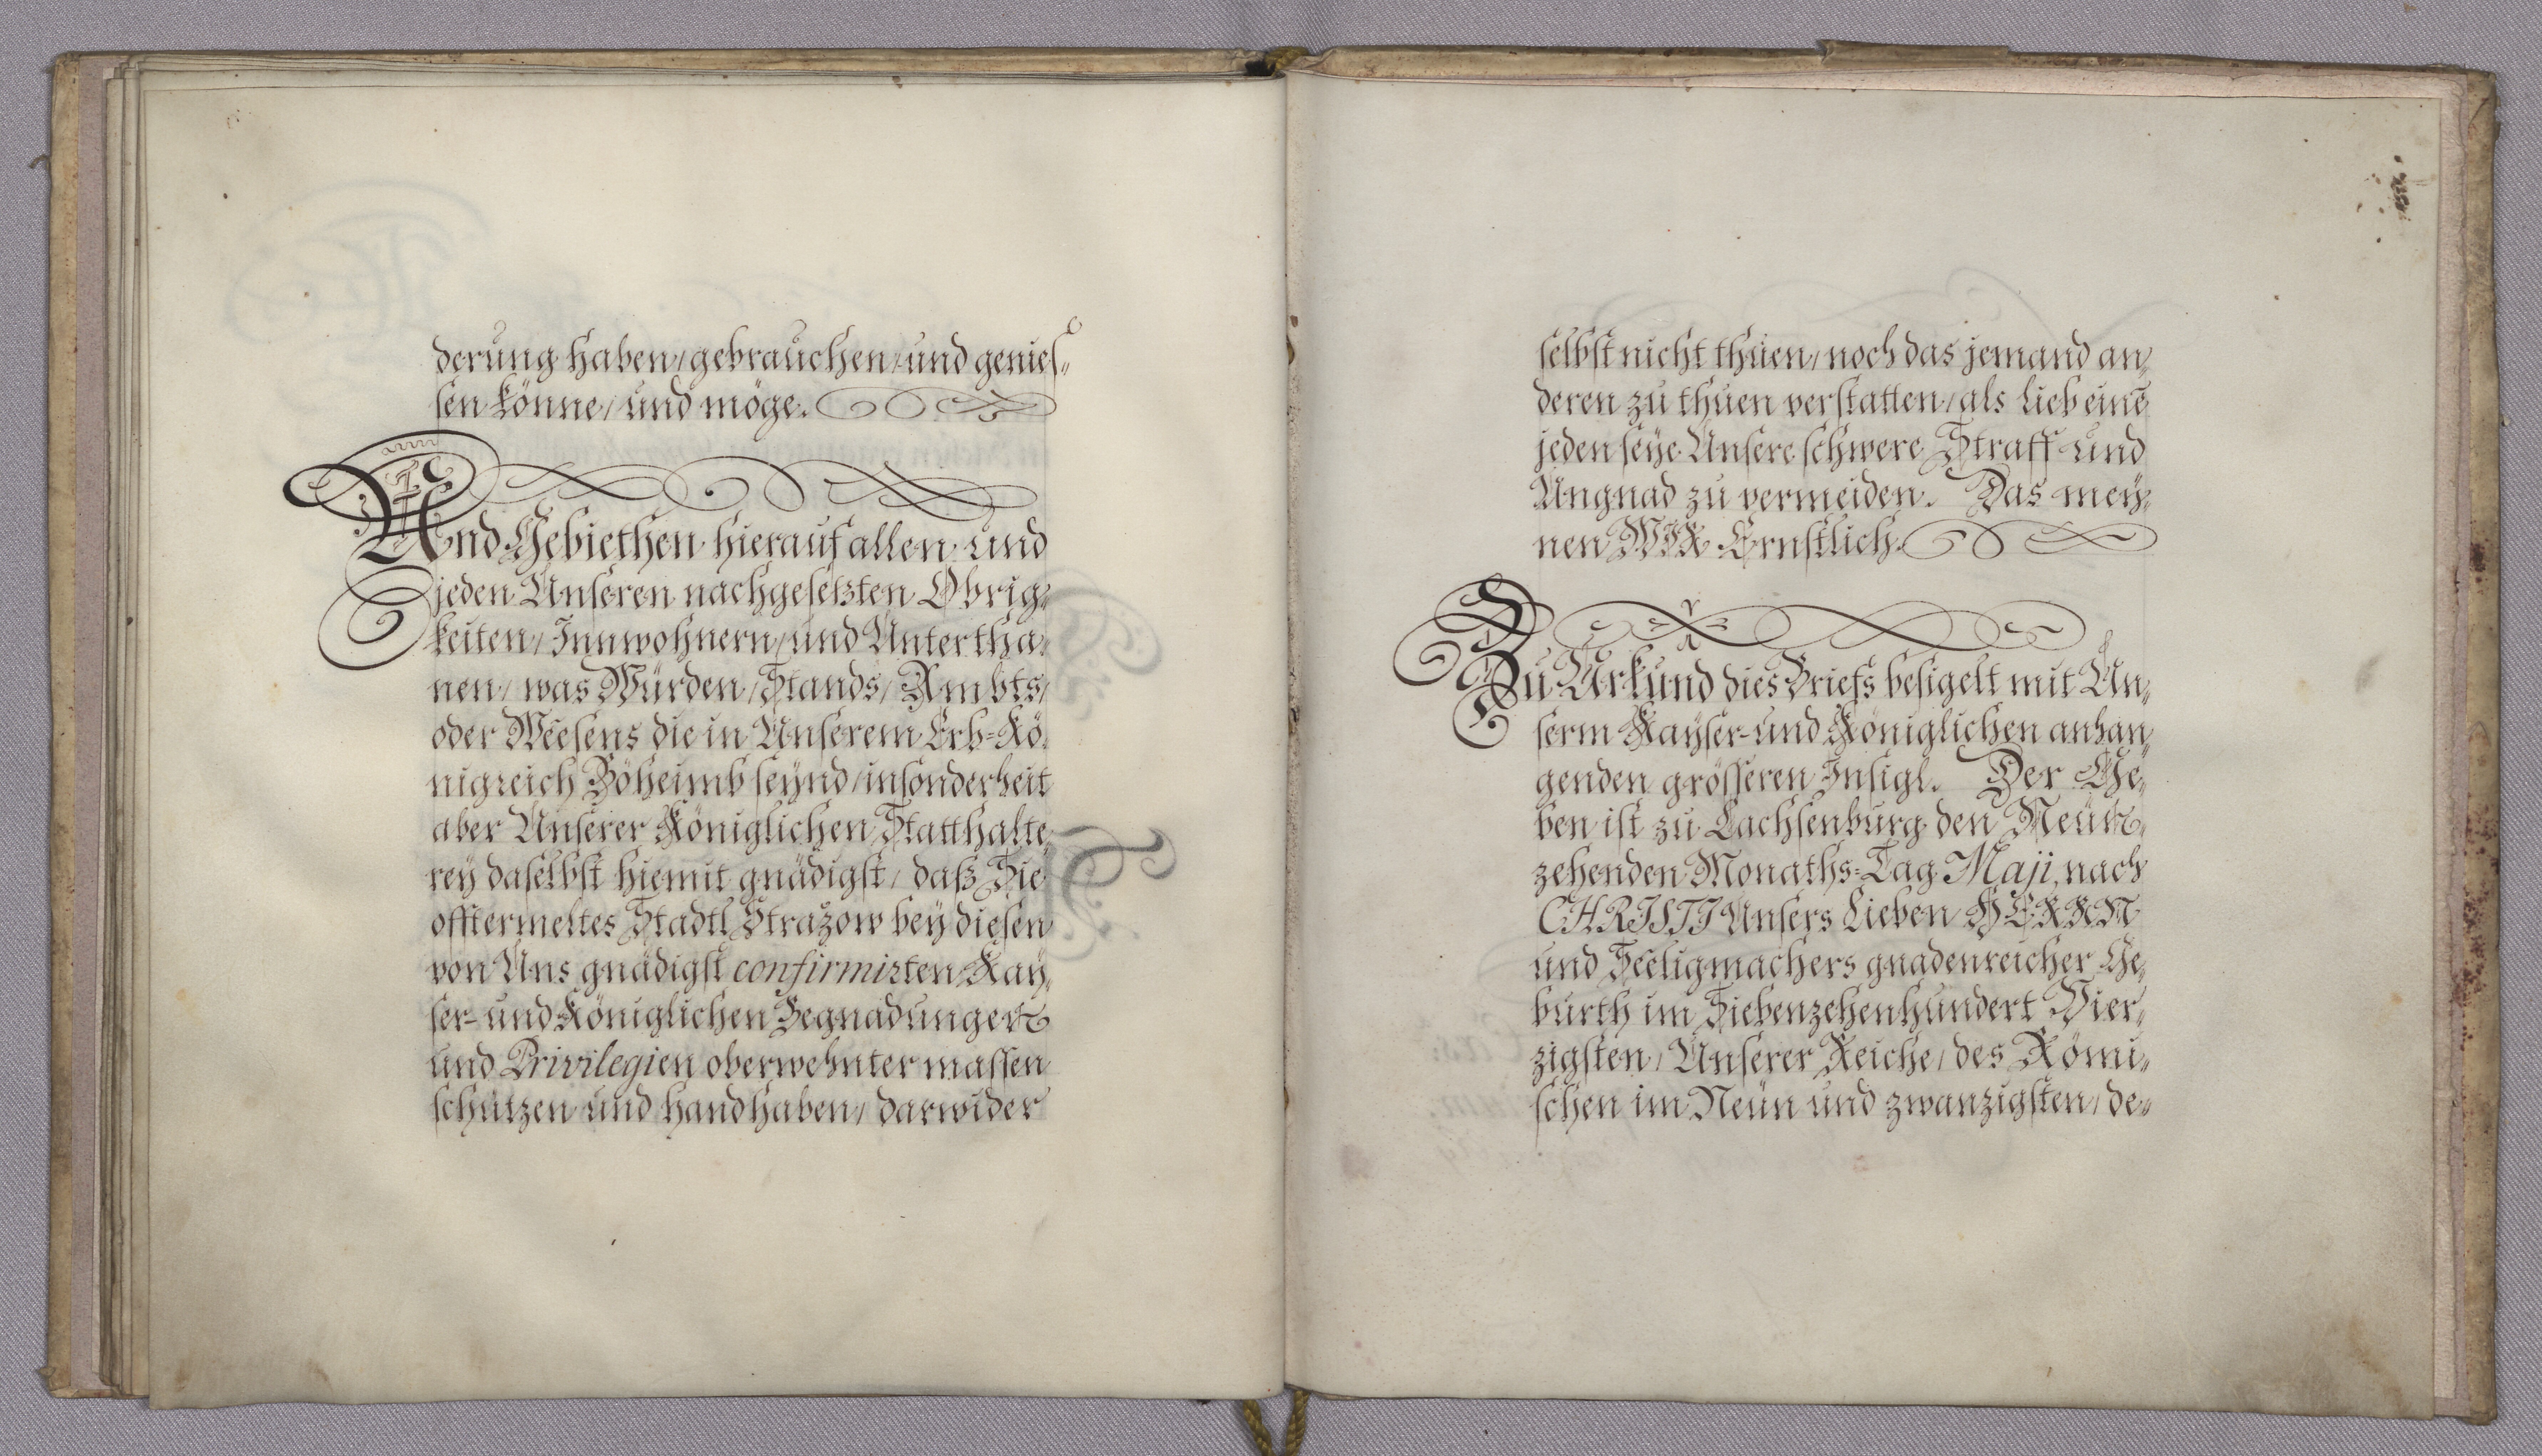 derung haben / gebrauchen / und genies„
sen könne / und möge.
Und Gebiethen hierauf allen und
jeden Unseren nachgesetzten Obrig„
keiten / Innwohnern / und Untertha„
nen / was Würden / Stands / Ambts /
oder Weesens die in Unserem Erb=Kö„
nigreich Böheimb seynd / insonderheit
aber Unserer Königlichen Statthalte„
rey daselbst hiemit gnädigst / daß Sie
offtermeltes Stadtl Stražow bey diesen
von Uns gnädigst confirmirten Kay„
ser- und Königlichen Begnadungen
und Privilegien oberwehnter massen
schutzen und handhaben / darwider
selbst nicht thuen / noch das jemand an„
deren zu thuen verstatten / als lieb einē
jeden seye Unsere schwere Straff und
Ungnad zu vermeiden. Das mey„
nen WIR Ernstlich.
Zu Urkund dies Briefs besigelt mit Un„
serm Kayser- und Königlichen anhan„
genden grösseren Insigl. Der Ge„
ben ist zu Lachsenburg den Neun„
zehenden Monaths=Tag Maji, nach
CHRISTI Unsers Lieben HERRN
und Seeligmachers gnadenreicher Ge„
burth im Siebenzehenhundert Vier„
zigsten / Unserer Reiche / des Römi„
schen im Neun und zwanzigsten / de„